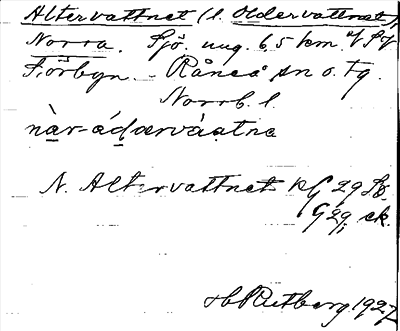 Altervattnet (l. Oldervattnet),
Norra. Sjö. ung. 6,5 km. V. SV
Förbyn. Råneå sn o. tg.
Norrb. l.
nàr-ádərváatnə
N. Altervattnet KG 29 Sö.
G 29, ek.
H. Rietberg 1927